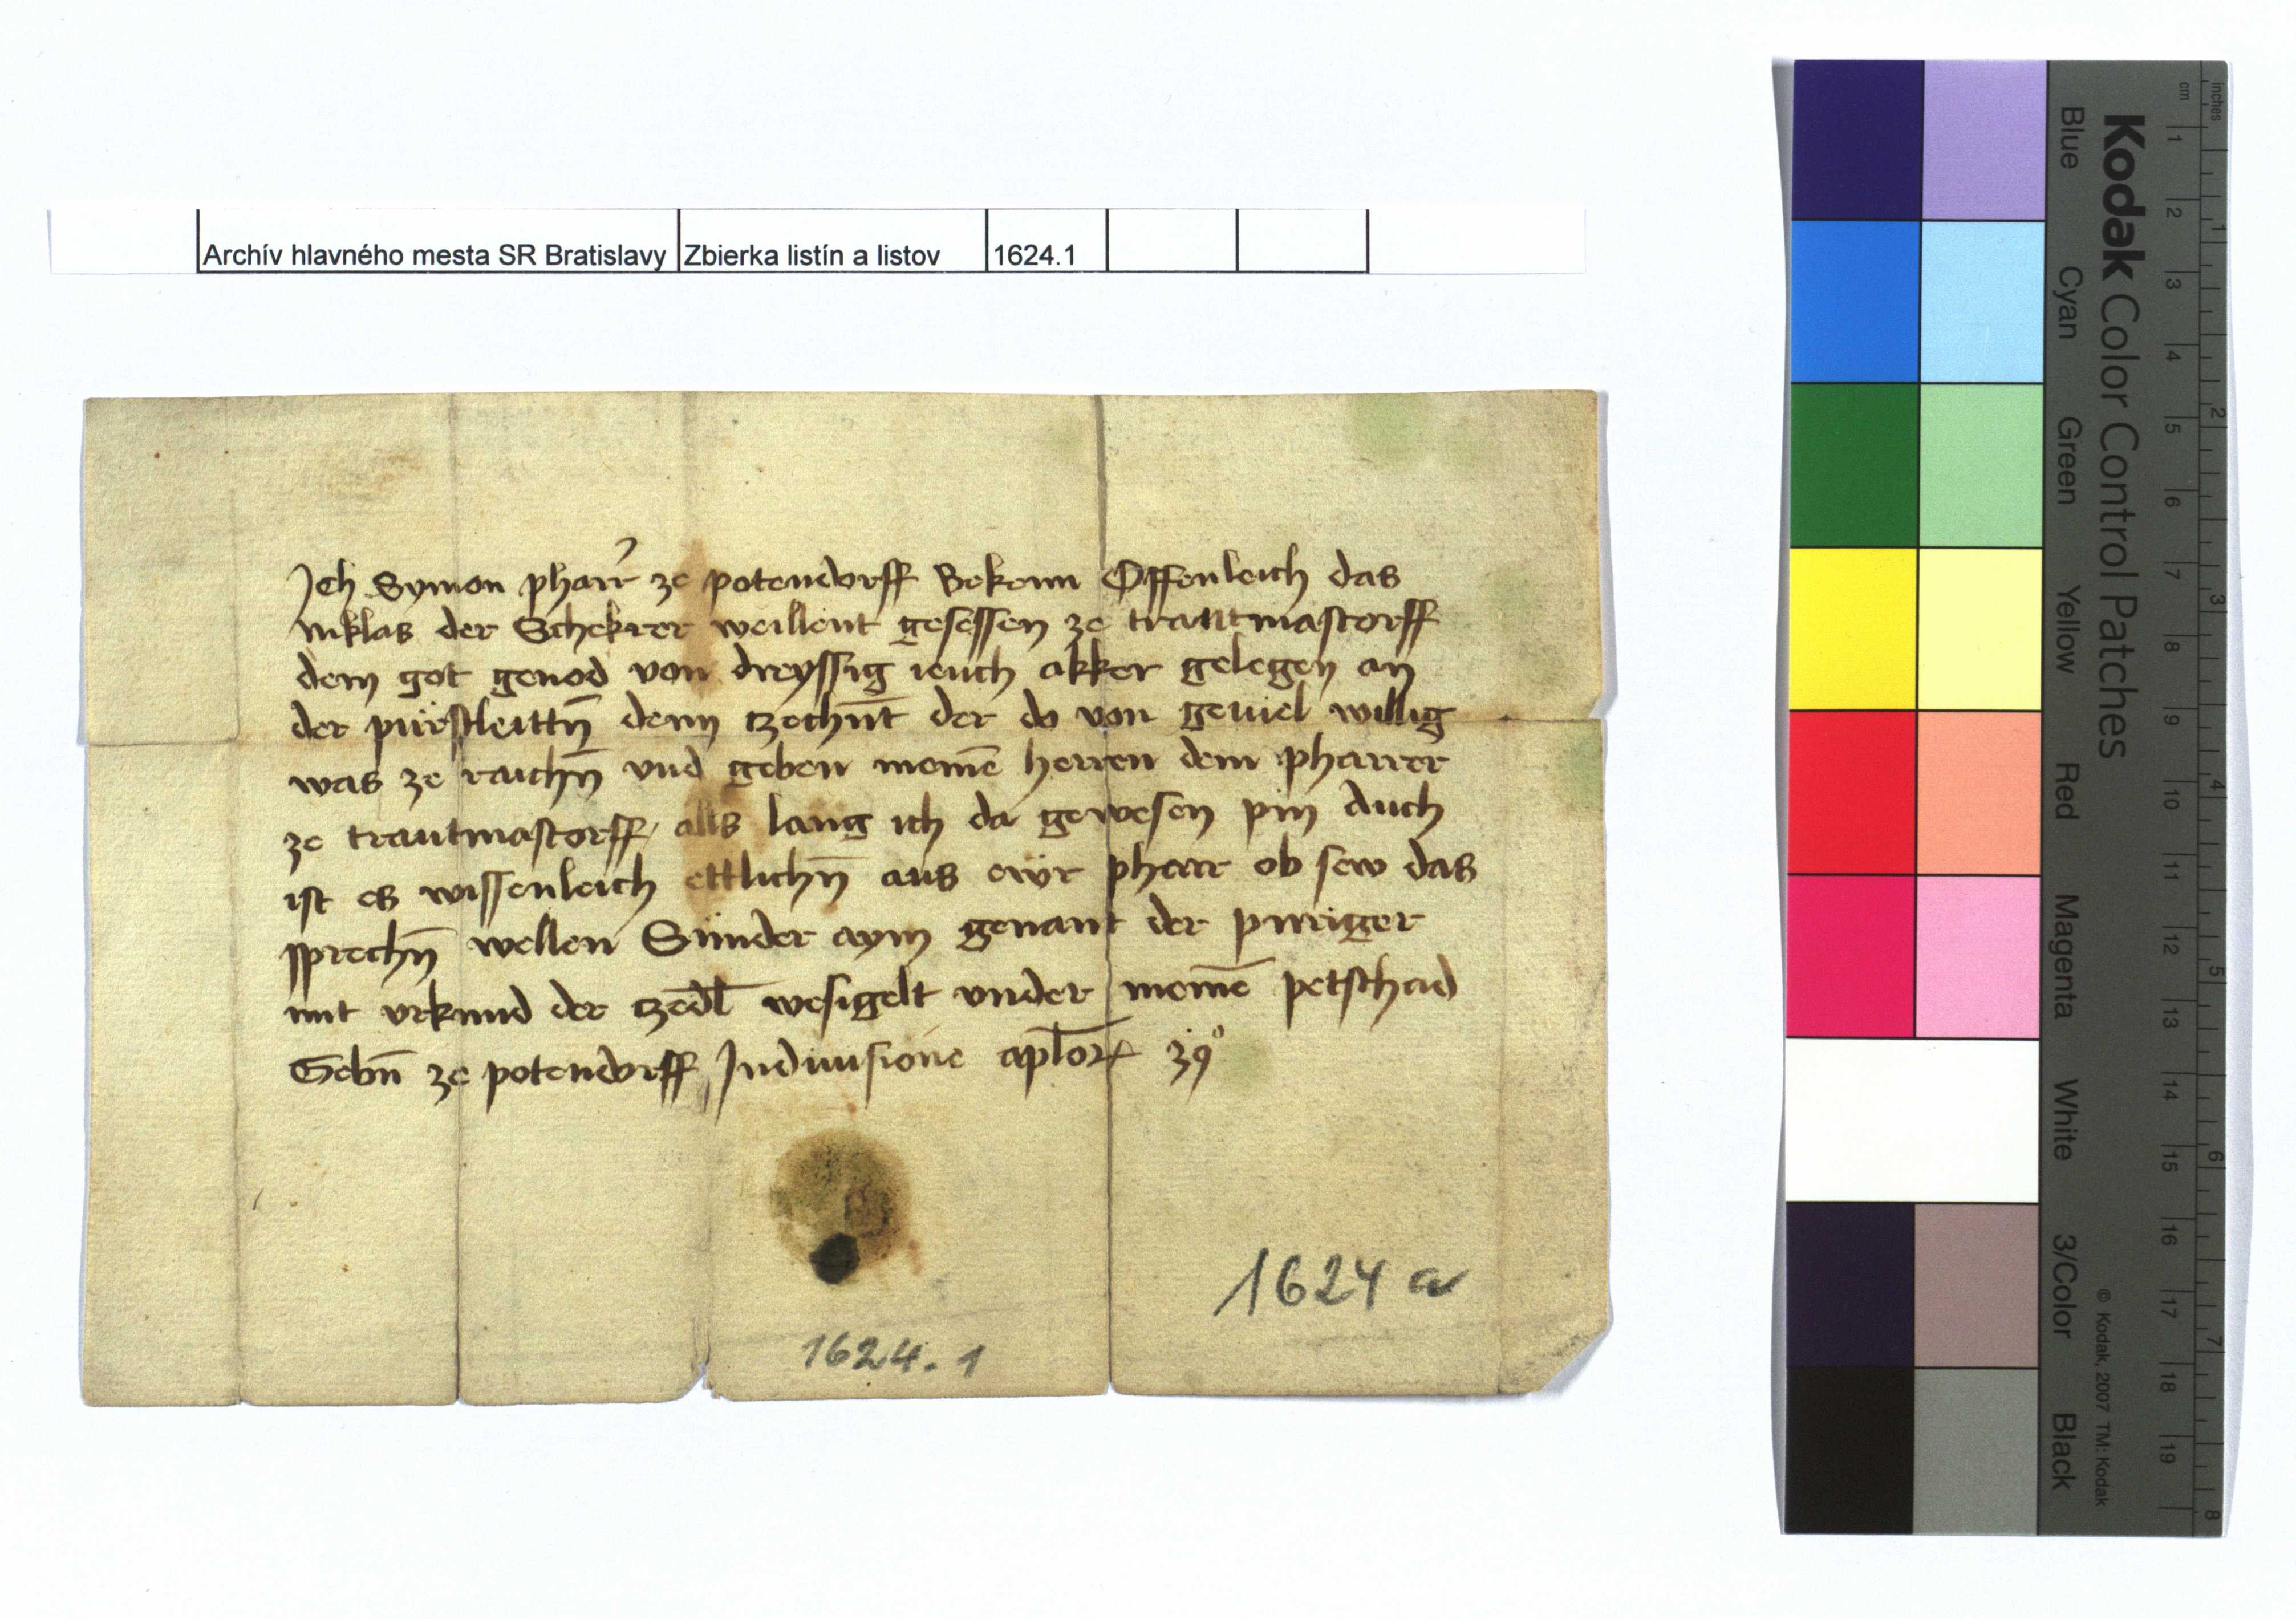 Archív hlavného mesta SR Bratislavy Zbierka listín a listov 1624.1
Ich Symon pharr ze potendorff Bekenn Offenleich das
Niklas der Schekrer weillent gesessen ze trauttmastorff
dem got genod von dreyssig ieuch akker gelegen an
der pürstleittn̄ denn tzechnt̄ der do von geuiel willig
was ze raichn̄ vnd geben meinē herren dem pharrer
ze trautmastorff alls lang ich da gewesen pin Auch
ist es wissenleich ettlichn̄ aus ewr pharr ob sew das
sprechn̄ wellen Sunder aym genant der puriger
mit vrkund der tzedl̄ wesigelt vnder meinē petschad
Gebn̄ ze potendorff In diuisione apl̄or 39°
1624 a
1624.1
Kodak Color Control Patches
Blue Cyan Green Yellow Red Magenta White 3/Color Black
© Kodak, 2007 TM: Kodak
inches 1 2 3 4 5 6 7 8
cm 1 2 3 4 5 6 7 8 9 10 11 12 13 14 15 16 17 18 19